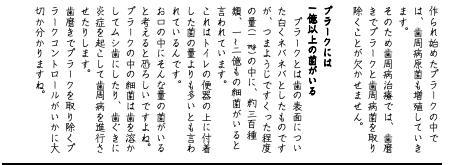 作られ始めたプラークの中で
は、歯周病原菌も増殖していき
ます。
そのため歯周病治療では、歯磨
きでプラークと歯周病菌を取り
除くことが欠かせません。
プラークには
一億以上の菌がいる
プラークとは歯の表面につい
た白くネバネバとしたものです
が、つまようじですくった程度
の量(一㎎)の中に、約三百種
類、一～二億もの細菌がいると
言われています。
これはトイレの便器の上に付着
した菌の量よりも多いとも言わ
れているんです。
お口の中にそんな量の菌がいる
と考えると恐ろしいですよね。
プラークの中の細菌は歯を溶か
してムシ歯にしたり、歯ぐきに
炎症を起こして歯周病を進行さ
せたりします。
歯磨きでプラークを取り除くプ
ラークコントロールがいかに大
切か分かりますね。